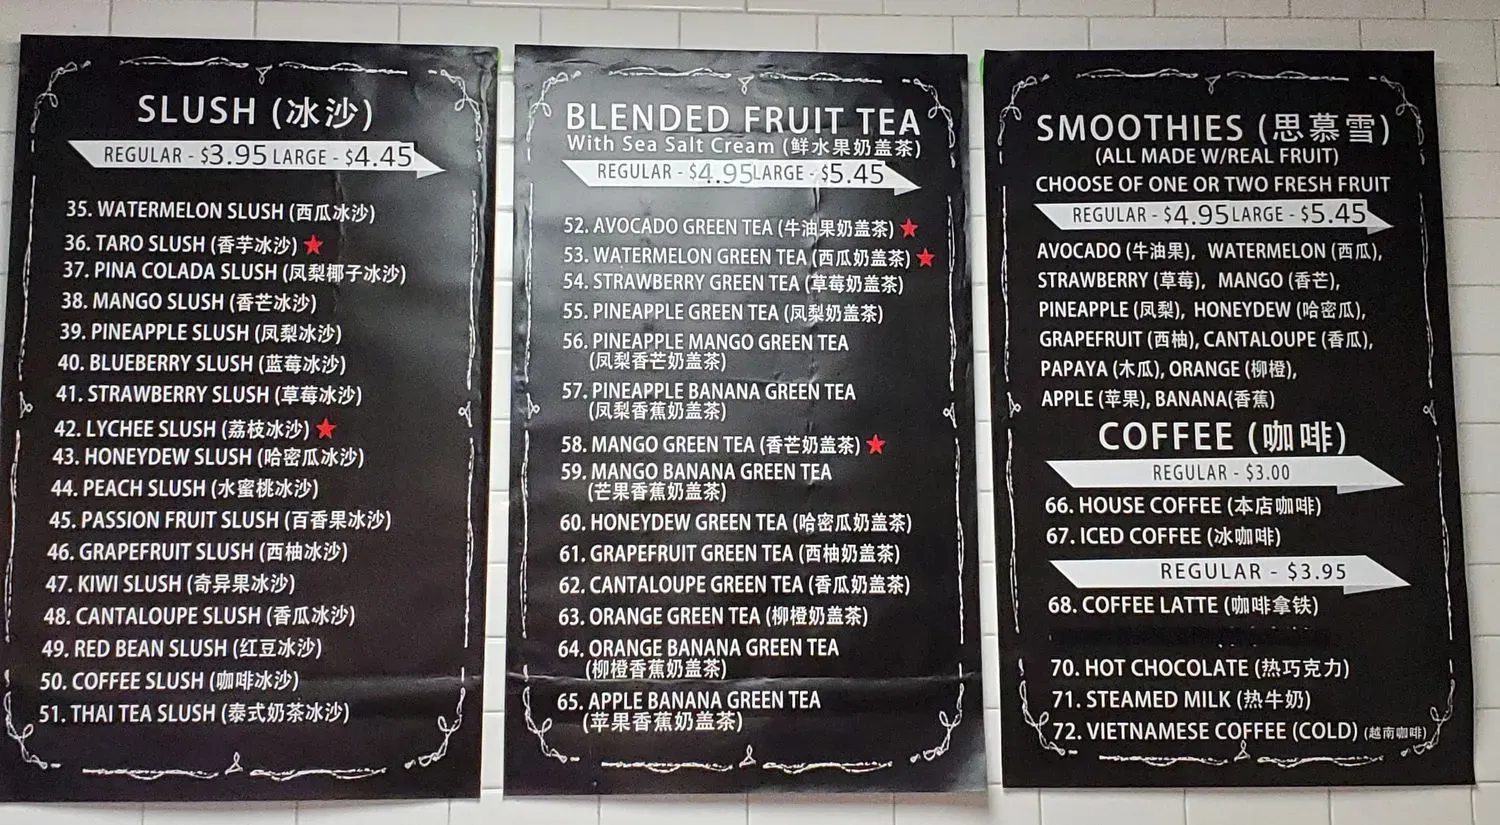 SLUSH (冰沙)
REGULAR - $3.95 LARGE - $4.45
35. WATERMELON SLUSH (西瓜冰沙)
36. TARO SLUSH (香芋冰沙)
37. PINA COLADA SLUSH (凤梨椰子冰沙)
38. MANGO SLUSH (香芒冰沙)
39. PINEAPPLE SLUSH (凤梨冰沙)
40. BLUEBERRY SLUSH (蓝莓冰沙)
41. STRAWBERRY SLUSH (草莓冰沙)
42. LYCHEE SLUSH (荔枝冰沙)
43. HONEYDEW SLUSH (哈密瓜冰沙)
44. PEACH SLUSH (水蜜桃冰沙)
45. PASSION FRUIT SLUSH (百香果冰沙)
46. GRAPEFRUIT SLUSH (西柚冰沙)
47. KIWI SLUSH (奇异果冰沙)
48. CANTALOUPE SLUSH (香瓜冰沙)
49. RED BEAN SLUSH (红豆冰沙)
50. COFFEE SLUSH (咖啡冰沙)
51. THAI TEA SLUSH (泰式奶茶冰沙)
BLENDED FRUIT TEA
With Sea Salt Cream (鲜水果奶盖茶)
REGULAR - $4.95 LARGE - $5.45
52. AVOCADO GREEN TEA (牛油果奶盖茶)
53. WATERMELON GREEN TEA (西瓜奶盖茶)
54. STRAWBERRY GREEN TEA (草莓奶盖茶)
55. PINEAPPLE GREEN TEA (凤梨奶盖茶)
56. PINEAPPLE MANGO GREEN TEA
(凤梨香芒奶盖茶)
57. PINEAPPLE BANANA GREEN TEA
(凤梨香蕉奶盖茶)
58. MANGO GREEN TEA (香芒奶盖茶)
59. MANGO BANANA GREEN TEA
(芒果香蕉奶盖茶)
60. HONEYDEW GREEN TEA (哈密瓜奶盖茶)
61. GRAPEFRUIT GREEN TEA (西柚奶盖茶)
62. CANTALOUPE GREEN TEA (香瓜奶盖茶)
63. ORANGE GREEN TEA (柳橙奶盖茶)
64. ORANGE BANANA GREEN TEA
(柳橙香蕉奶盖茶)
65. APPLE BANANA GREEN TEA
(苹果香蕉奶盖茶)
SMOOTHIES (思慕雪)
(ALL MADE W/REAL FRUIT)
CHOOSE OF ONE OR TWO FRESH FRUIT
REGULAR - $4.95 LARGE - $5.45
AVOCADO (牛油果), WATERMELON (西瓜),
STRAWBERRY (草莓), MANGO (香芒),
PINEAPPLE (凤梨), HONEYDEW (哈密瓜),
GRAPEFRUIT (西柚), CANTALOUPE (香瓜),
PAPAYA (木瓜), ORANGE (柳橙),
APPLE (苹果), BANANA(香蕉)
COFFEE (咖啡)
REGULAR - $3.00
66. HOUSE COFFEE (本店咖啡)
67. ICED COFFEE (冰咖啡)
REGULAR - $3.95
68. COFFEE LATTE (咖啡拿铁)
70. HOT CHOCOLATE (热巧克力)
71. STEAMED MILK (热牛奶)
72. VIETNAMESE COFFEE (COLD) (越南咖啡)